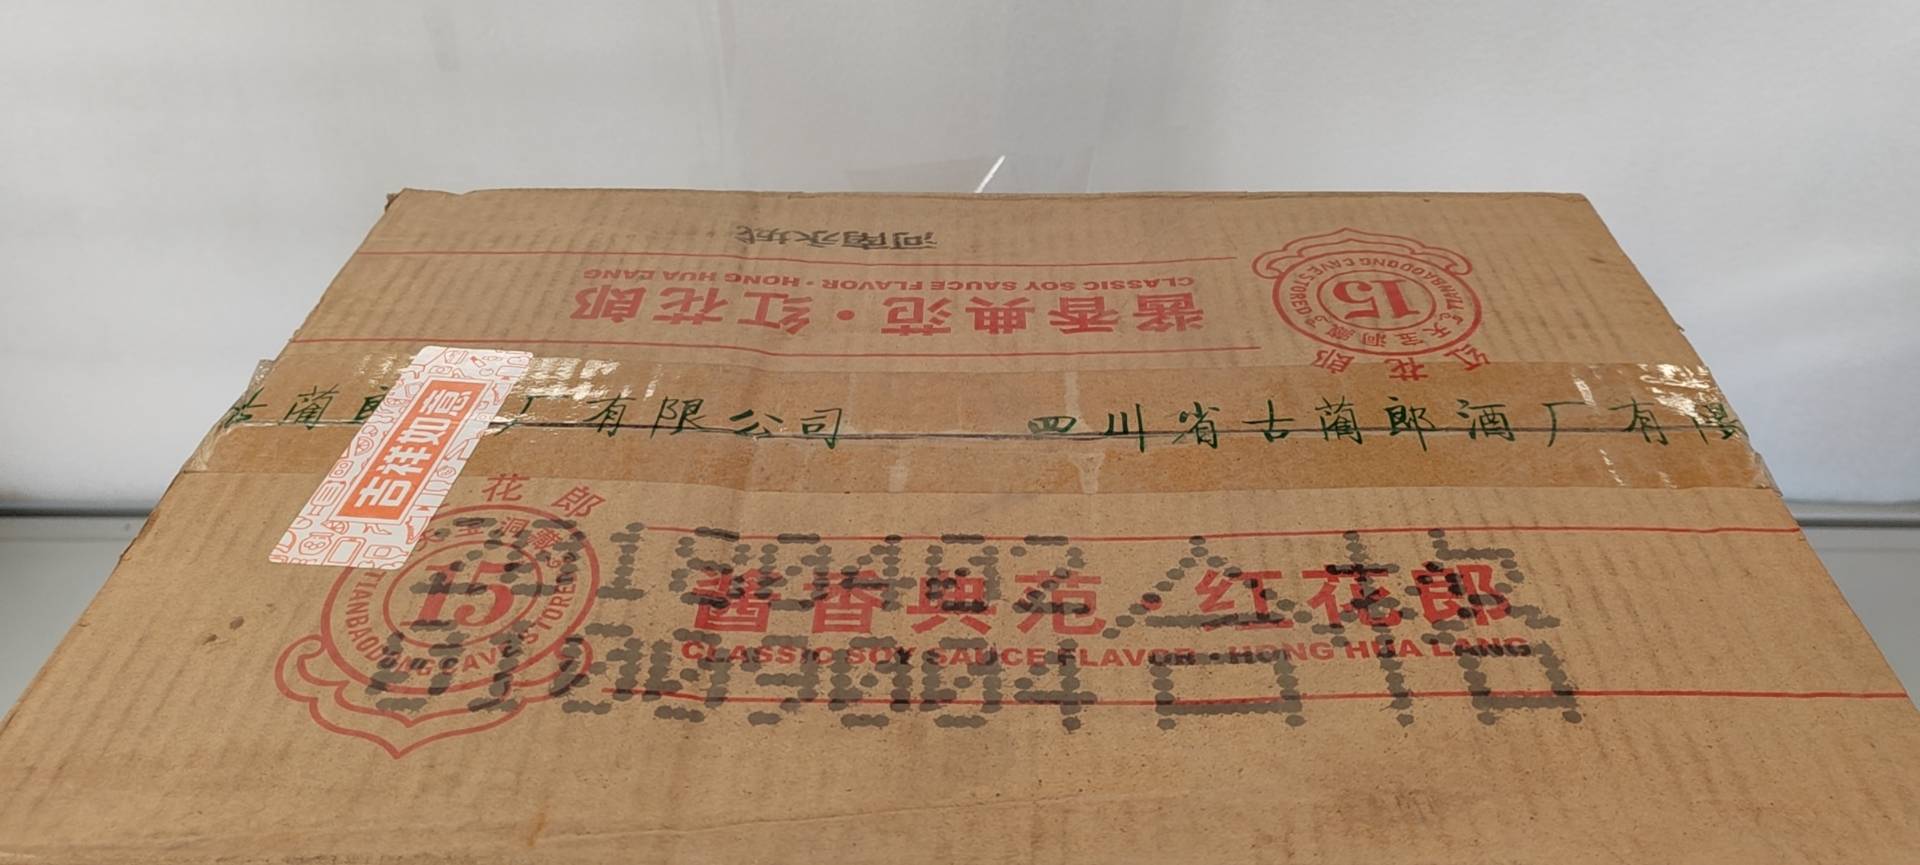 河南永城
CLASSIC SOY SAUCE FLAVOR · HONG HUA LANG
酱香典范·红花郎
TIANBAODONG CAVE STORED
15
天宝洞藏
红花郎
厂有限公司 四川省古蔺郎酒厂有限
吉祥如意
花郎
宝洞藏
15
TIANBAODONG CAVE STORED
酱香典范·红花郎
CLASSIC SOY SAUCE FLAVOR · HONG HUA LANG